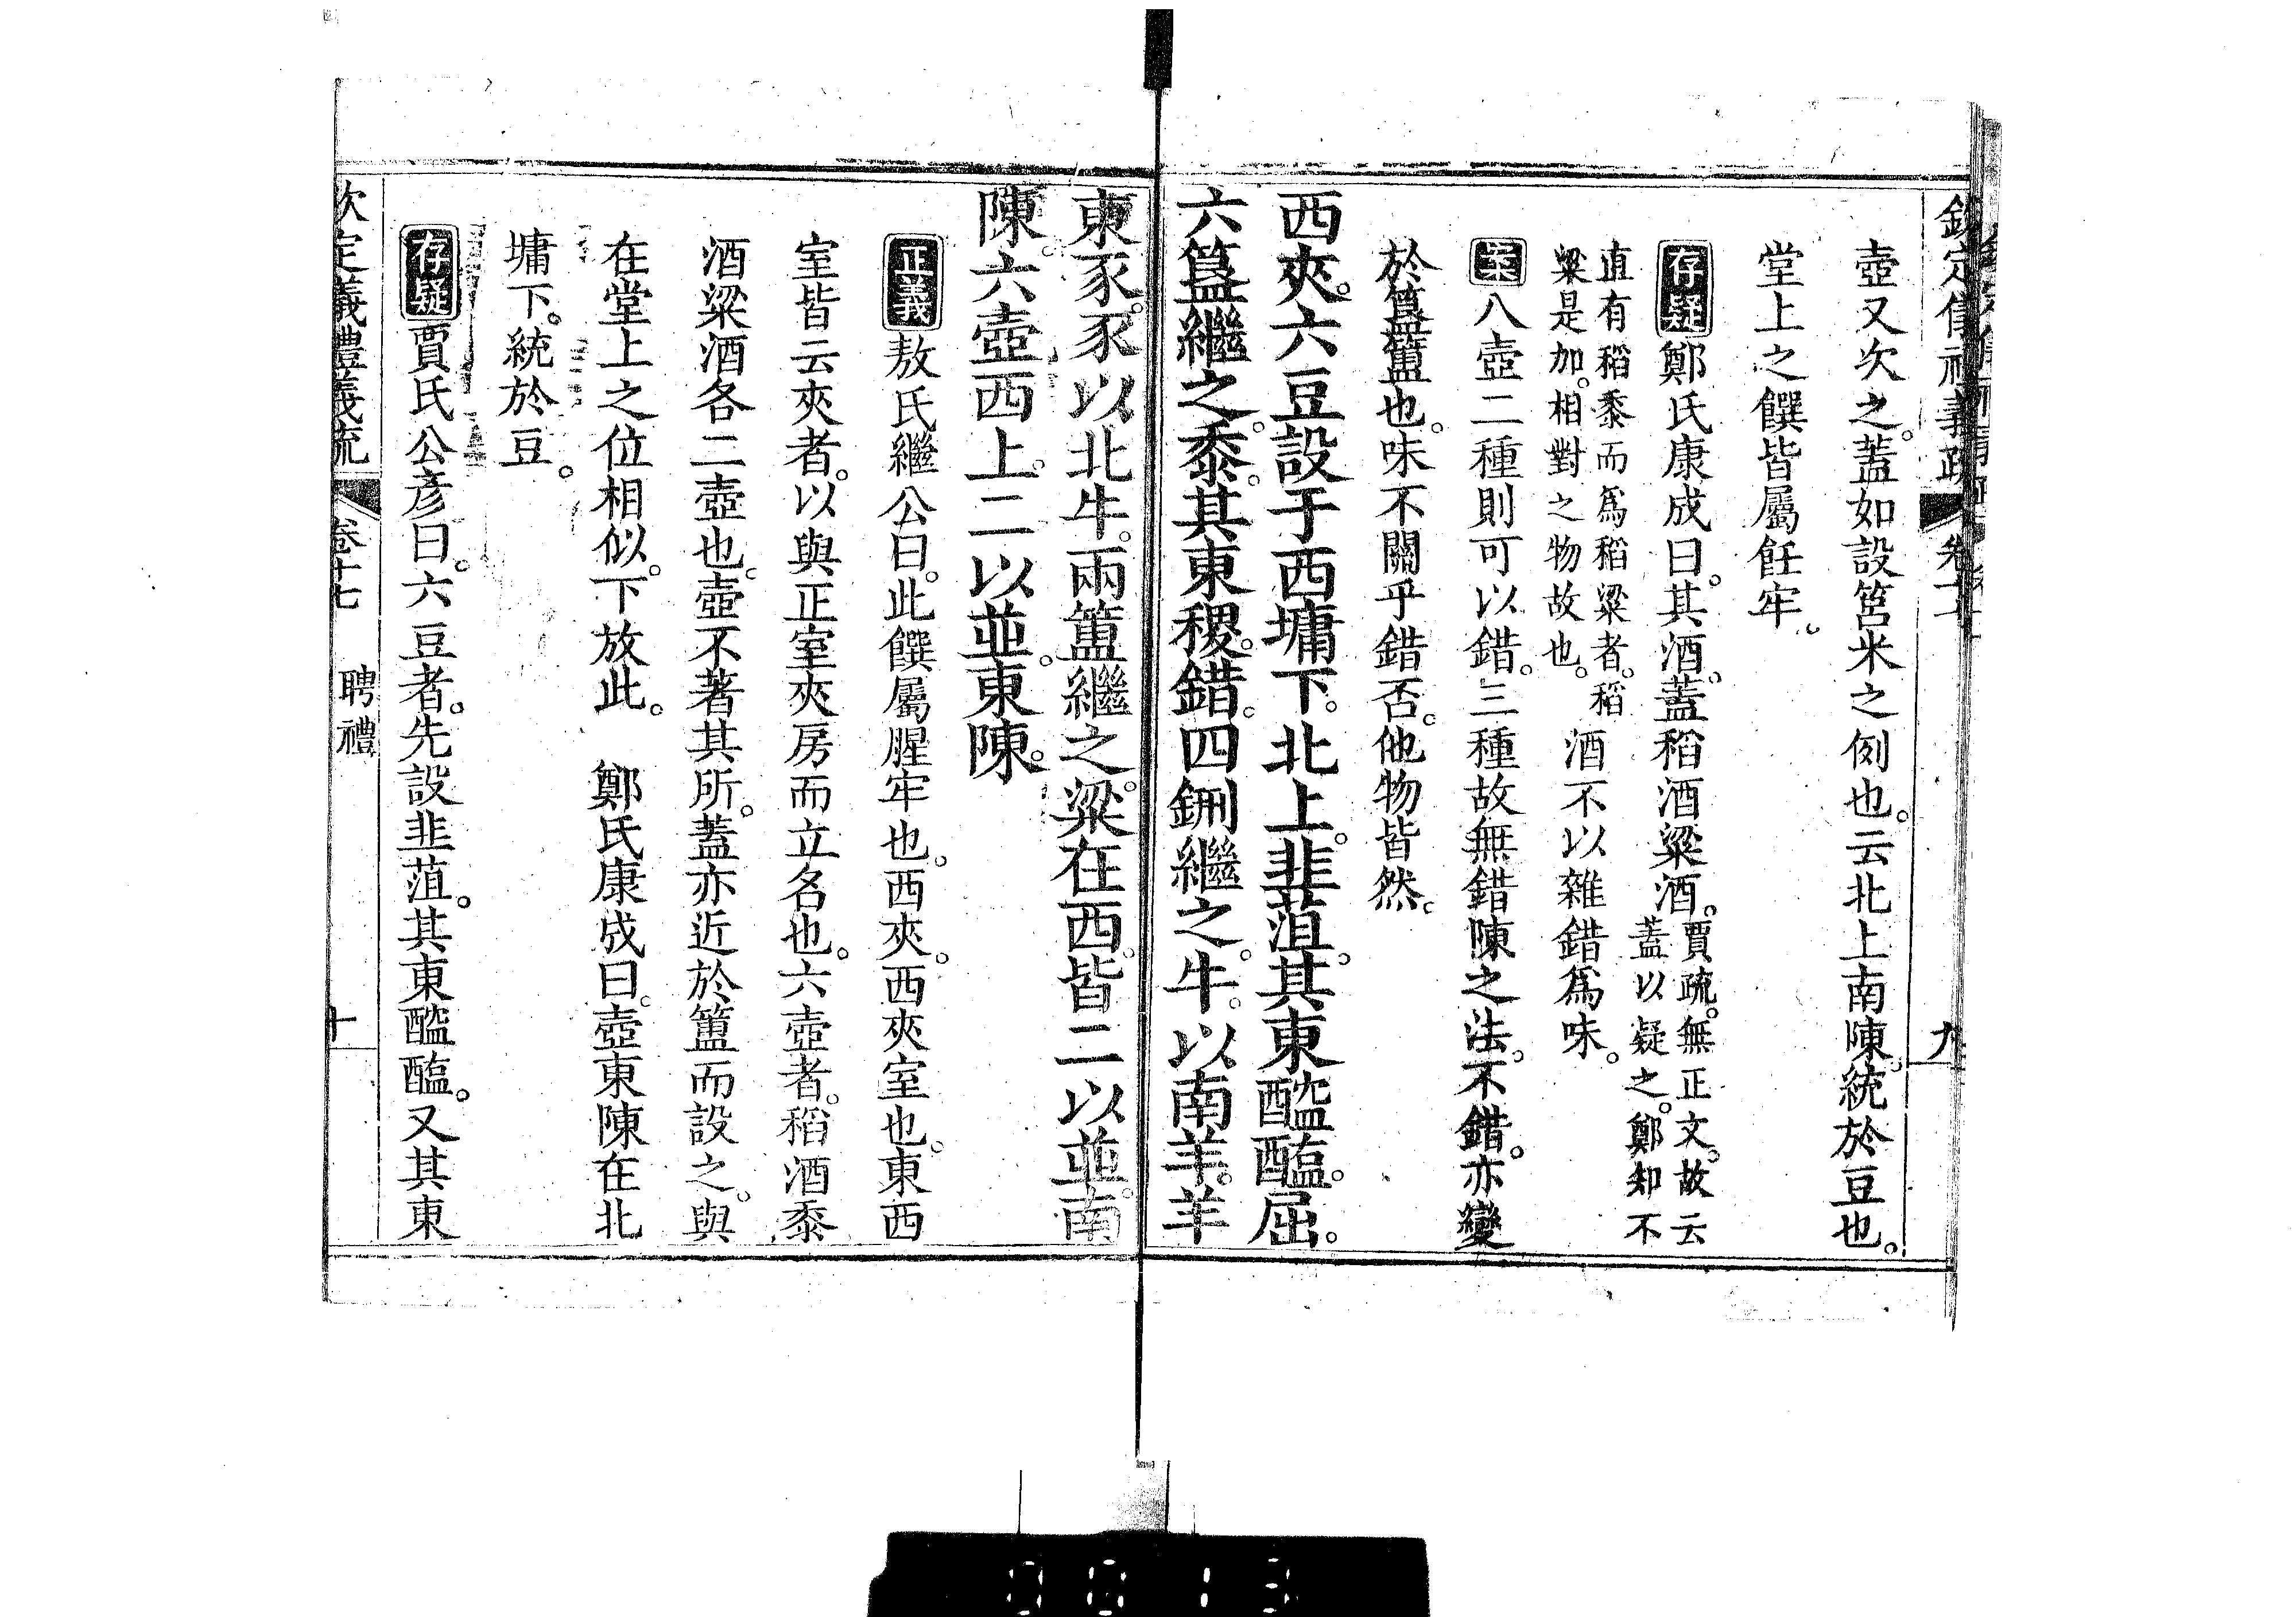 壺又次之。蓋如設筥米之例也。云北上南陳。統於豆也。
堂上之饌皆屬飪牢。
存疑鄭氏康成曰。其酒。蓋稻酒粱酒。賈疏。無正文。故云蓋以疑之。鄭知不
直有稻黍而爲稻粱者。稻粱是加。相對之物故也。酒不以雜錯爲味。
案八壺二種則可以錯。三種故無錯陳之法。不錯。亦變
於簋簠也。味不關乎錯否。他物皆然。
西夾。六豆設于西墉下。北上。韭菹。其東醓醢。屈。
六簋繼之。黍。其東稷。錯。四鉶繼之。牛。以南羊。羊
東豕。豕以北牛。兩簠繼之。粱在西。皆二以並。南
陳。六壺西上。二以並。東陳。
正義敖氏繼公曰。此饌屬腥牢也。西夾。西夾室也。東西
室皆云夾者。以與正室夾房而立名也。六壺者。稻酒黍
酒粱酒各二壺也。壺不著其所。蓋亦近於簠而設之。與
在堂上之位相似。下放此。 鄭氏康成曰。壺東陳在北
墉下。統於豆。
存疑賈氏公彥曰。六豆者。先設韭菹。其東醓醢。又其東
欽定儀禮義疏 卷十七 聘禮 十